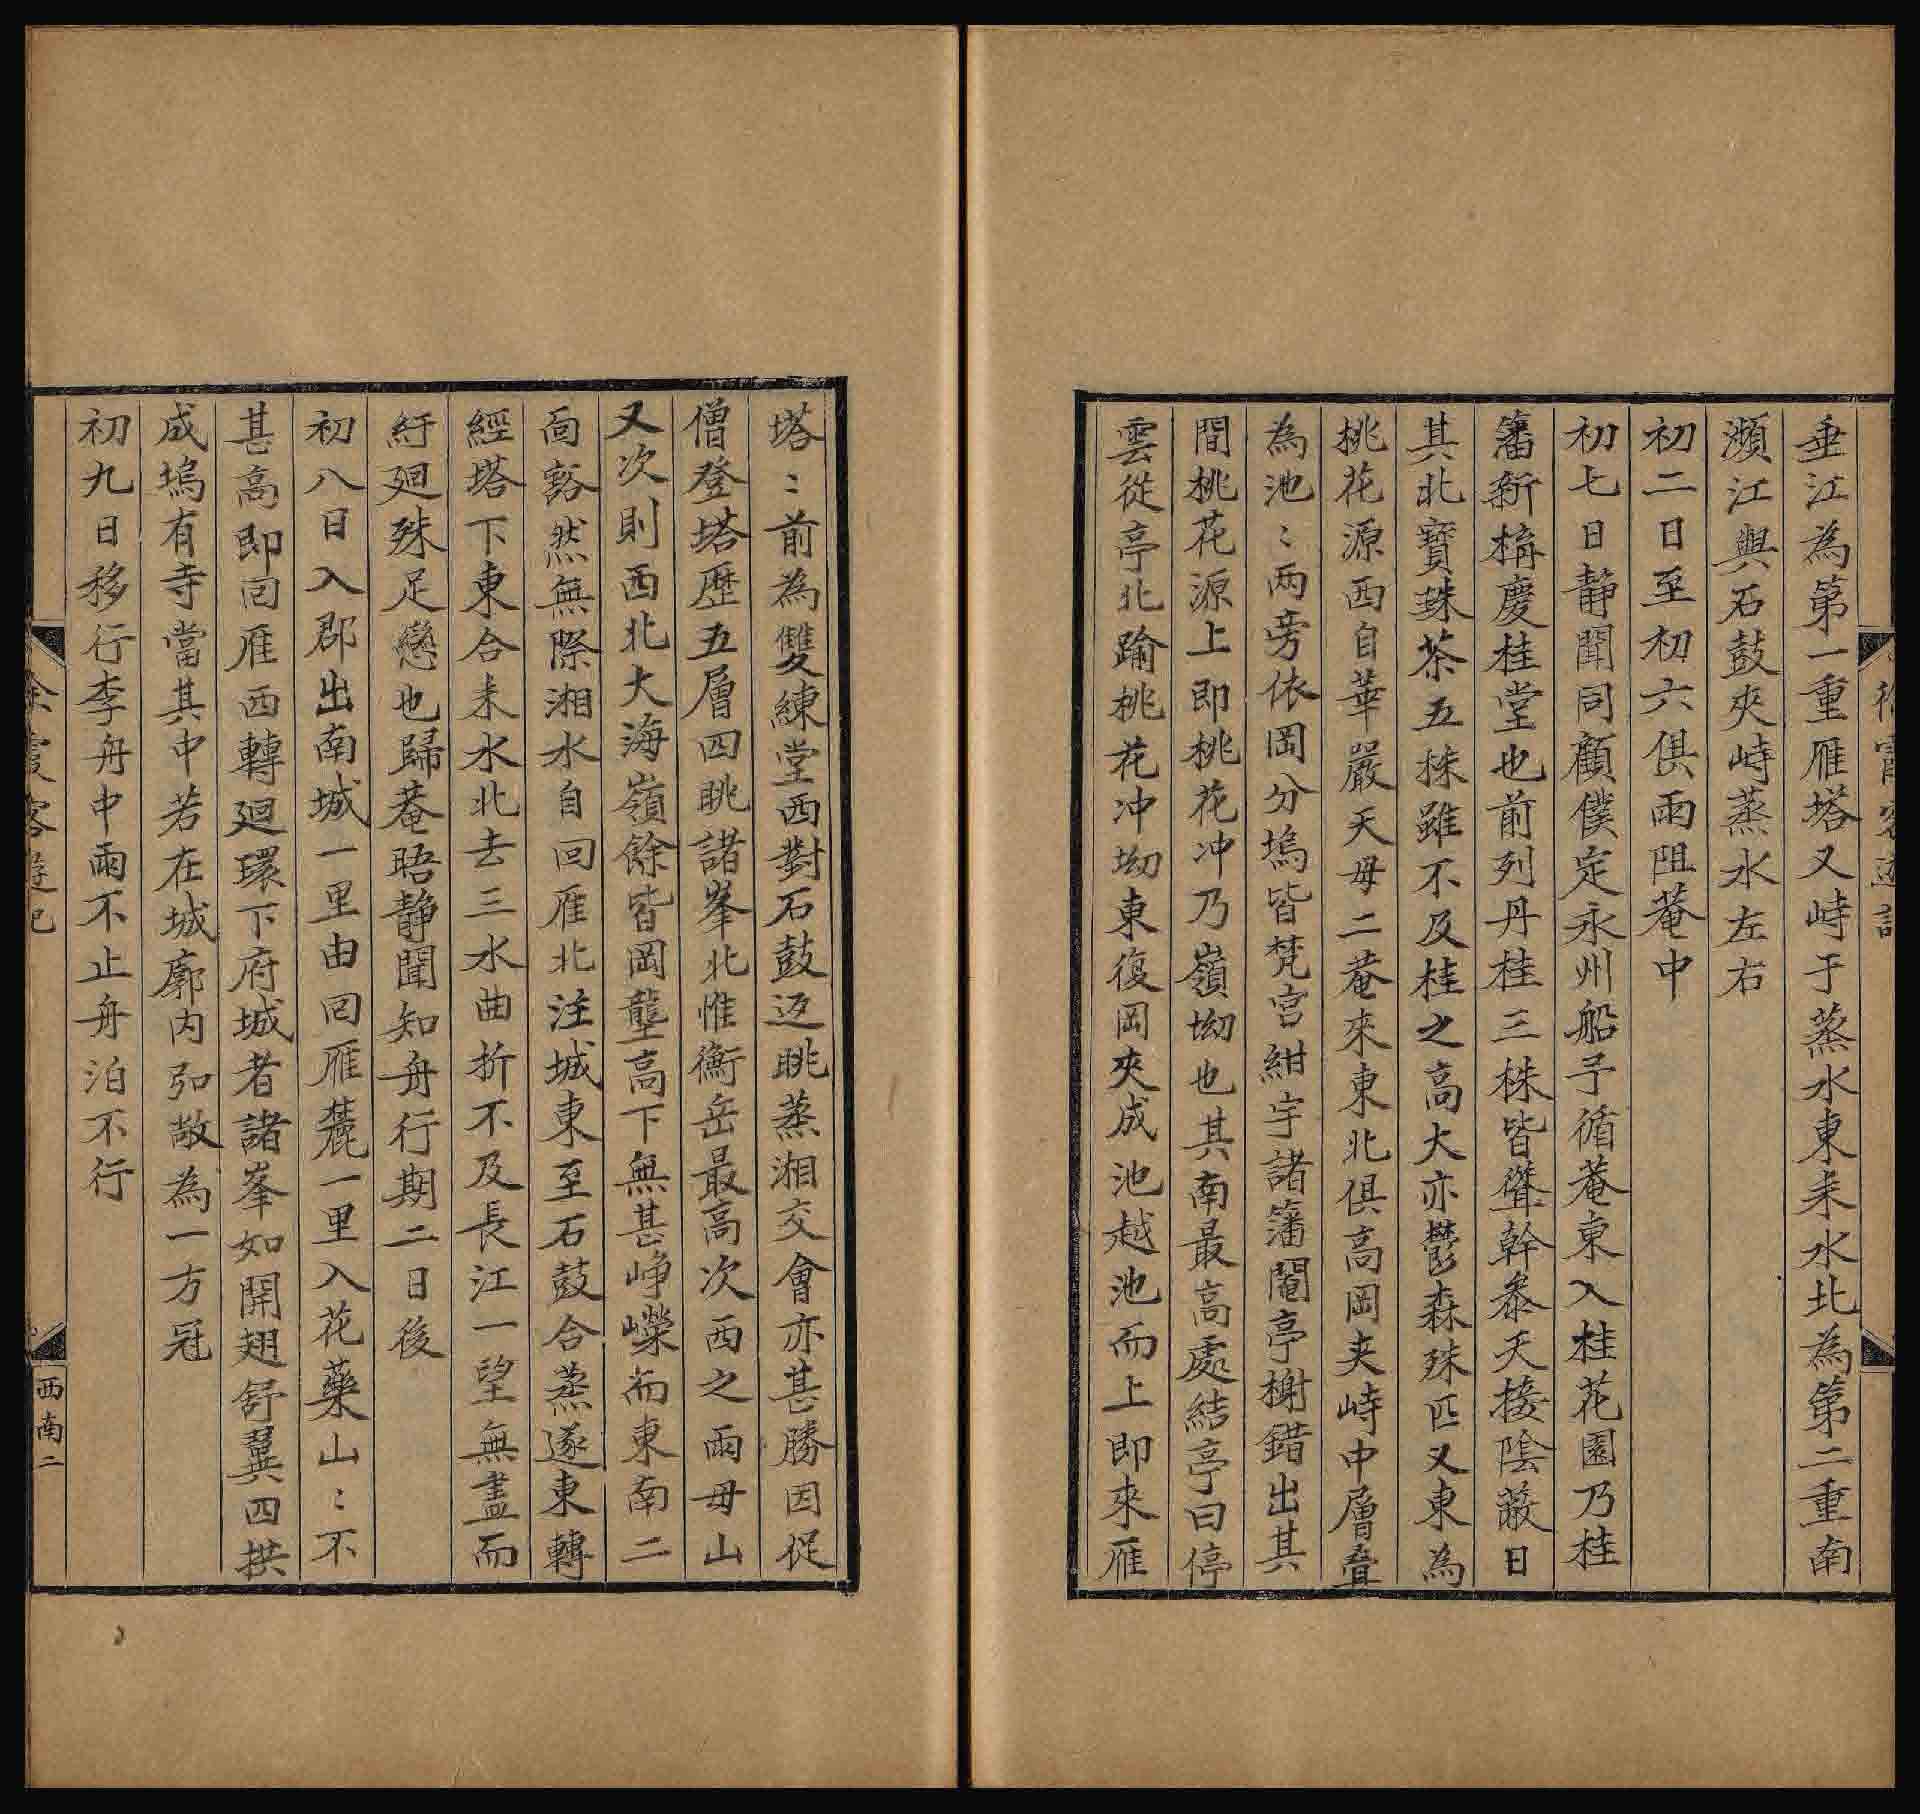 徐霞客遊記
垂江為第一重雁塔又峙于蒸水東耒水北為第二重南
瀕江與石鼓夾峙蒸水左右
初二日至初六俱雨阻菴中
初七日靜聞同顧僕定永州船予循菴東入桂花園乃桂
藩新構慶桂堂也前列丹桂三株皆聳幹叅天接陰蔽日
其北寶珠茶五株雖不及桂之高大亦鬱森殊匹又東為
桃花源西自華嚴天母二菴來東北俱高岡夾峙中層疊
為池〻兩旁依岡分塢皆梵宮紺宇諸藩閹亭榭錯出其
間桃花源上即桃花冲乃嶺坳也其南最高處結亭曰停
雲從亭北踰桃花冲坳東復岡夾成池越池而上即來雁
塔〻前為雙練堂西對石鼓返眺蒸湘交會亦甚勝因促
僧登塔歷五層四眺諸峯北惟衡岳最高次西之雨母山
又次則西北大海嶺餘皆岡壟高下無甚崢嶸而東南二
面豁然無際湘水自回雁北注城東至石鼓合蒸遂東轉
經塔下東合耒水北去三水曲折不及長江一望無盡而
紆廻殊足戀也歸菴晤靜聞知舟行期二日後
初八日入郡出南城一里由回雁麓一里入花藥山〻不
甚高即回雁西轉廻環下府城者諸峯如開翅舒翼四拱
成塢有寺當其中若在城廓内弘敞為一方冠
初九日移行李舟中雨不止舟泊不行
徐霞客遊記
西南二